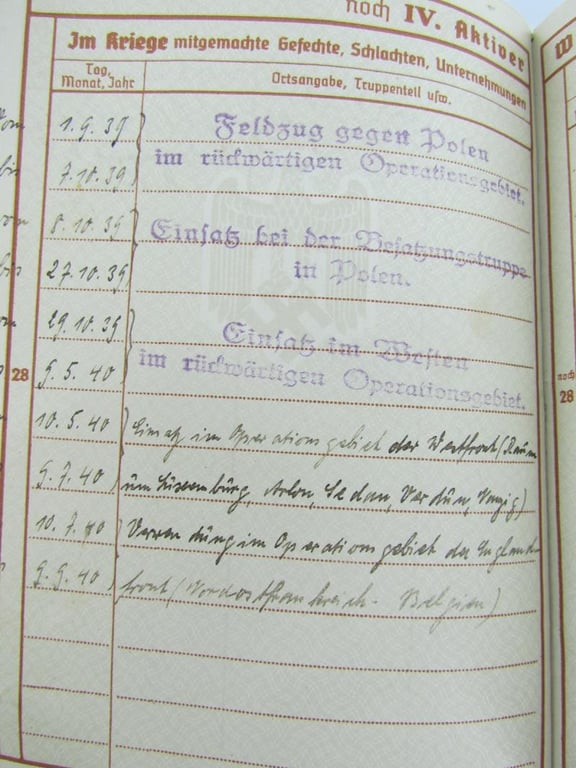 noch IV. Aktiver
Im Kriege mitgemachte Gefechte, Schlachten, Unternehmungen
Tag, Monat, Jahr
Ortsangabe, Truppenteil usw.
1.9.39
Feldzug gegen Polen
7.10.39
im rückwärtigen Operationsgebiet.
8.10.39
Einsatz bei der Besatzungstruppe
27.10.39
in Polen.
29.10.39
Einsatz im Westen
28
9.5.40
im rückwärtigen Operationsgebiet.
10.5.40
Einsatz im Operationsgebiet der Westfront (Raum
9.7.40
um Luxemburg, Arlon, Sedan, Verdun,
10.7.40
Verwendung im Operationsgebiet der England-
9.9.40
front (Nordostfrankreich - Belgien)
W
noch
28